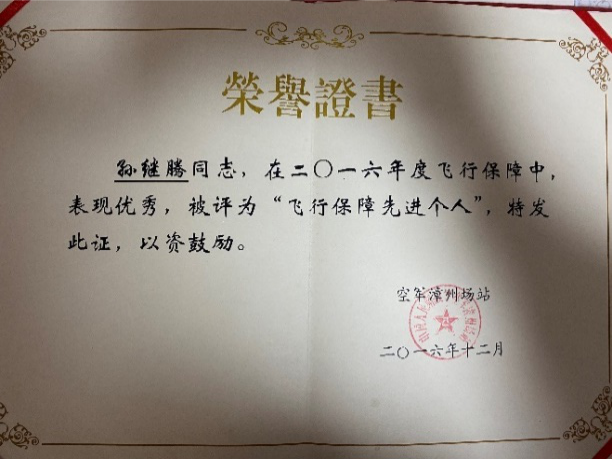 榮譽證書
孙继腾同志，在二〇一六年度飞行保障中，
表现优秀，被评为“飞行保障先进个人”，特发
此证，以资鼓励。
空军漳州场站
二〇一六年十二月